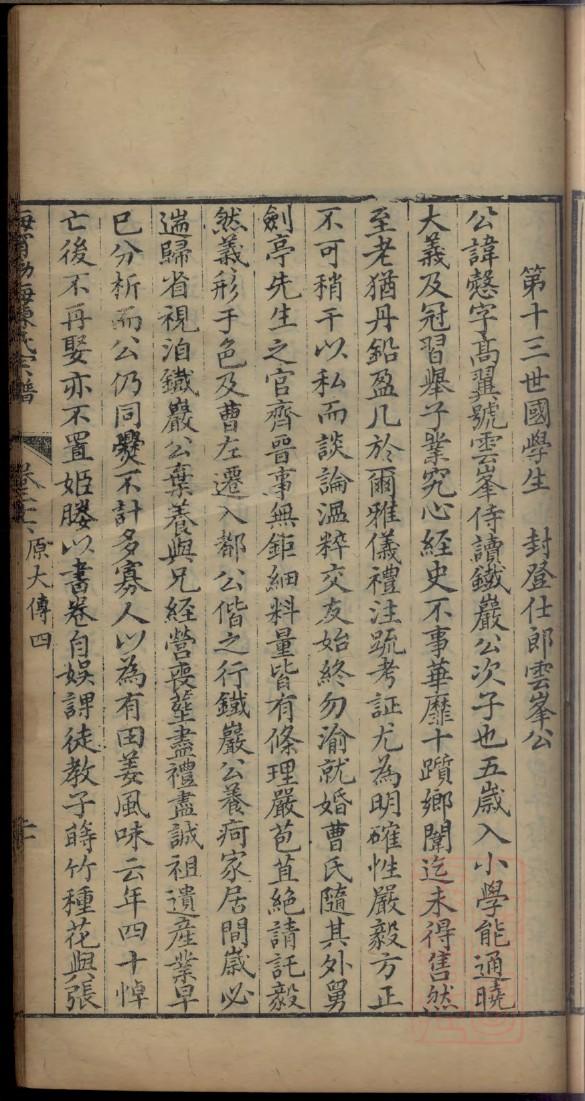 第十三世國學生　封登仕郎雲峯公
公諱慤字髙翼號雲峯侍讀鐵巖公次子也五歲入小學能通曉
大義及冠習舉子業究心經史不事華靡十躓鄉闈迄未得售然
至老猶丹鉛盈几於爾雅儀禮注疏考証尤為明確性嚴毅方正
不可稍干以私而談論温粹交友始終勿渝就婚曹氏隨其外舅
劍亭先生之官齊晉事無鉅細料量皆有條理嚴苞苴絶請託毅
然義形于色及曹左遷入都公偕之行鐵巖公養疴家居間歲必
遄歸省視洎鐵巖公棄養與兄經營喪塟盡禮盡誠祖遺產業早
已分析而公仍同爨不計多寡人以為有田姜風味云年四十悼
亡後不再娶亦不置姬媵以書卷自娱課徒教子蒔竹種花與張
海寧渤海陳氏宗譜　原大傳四